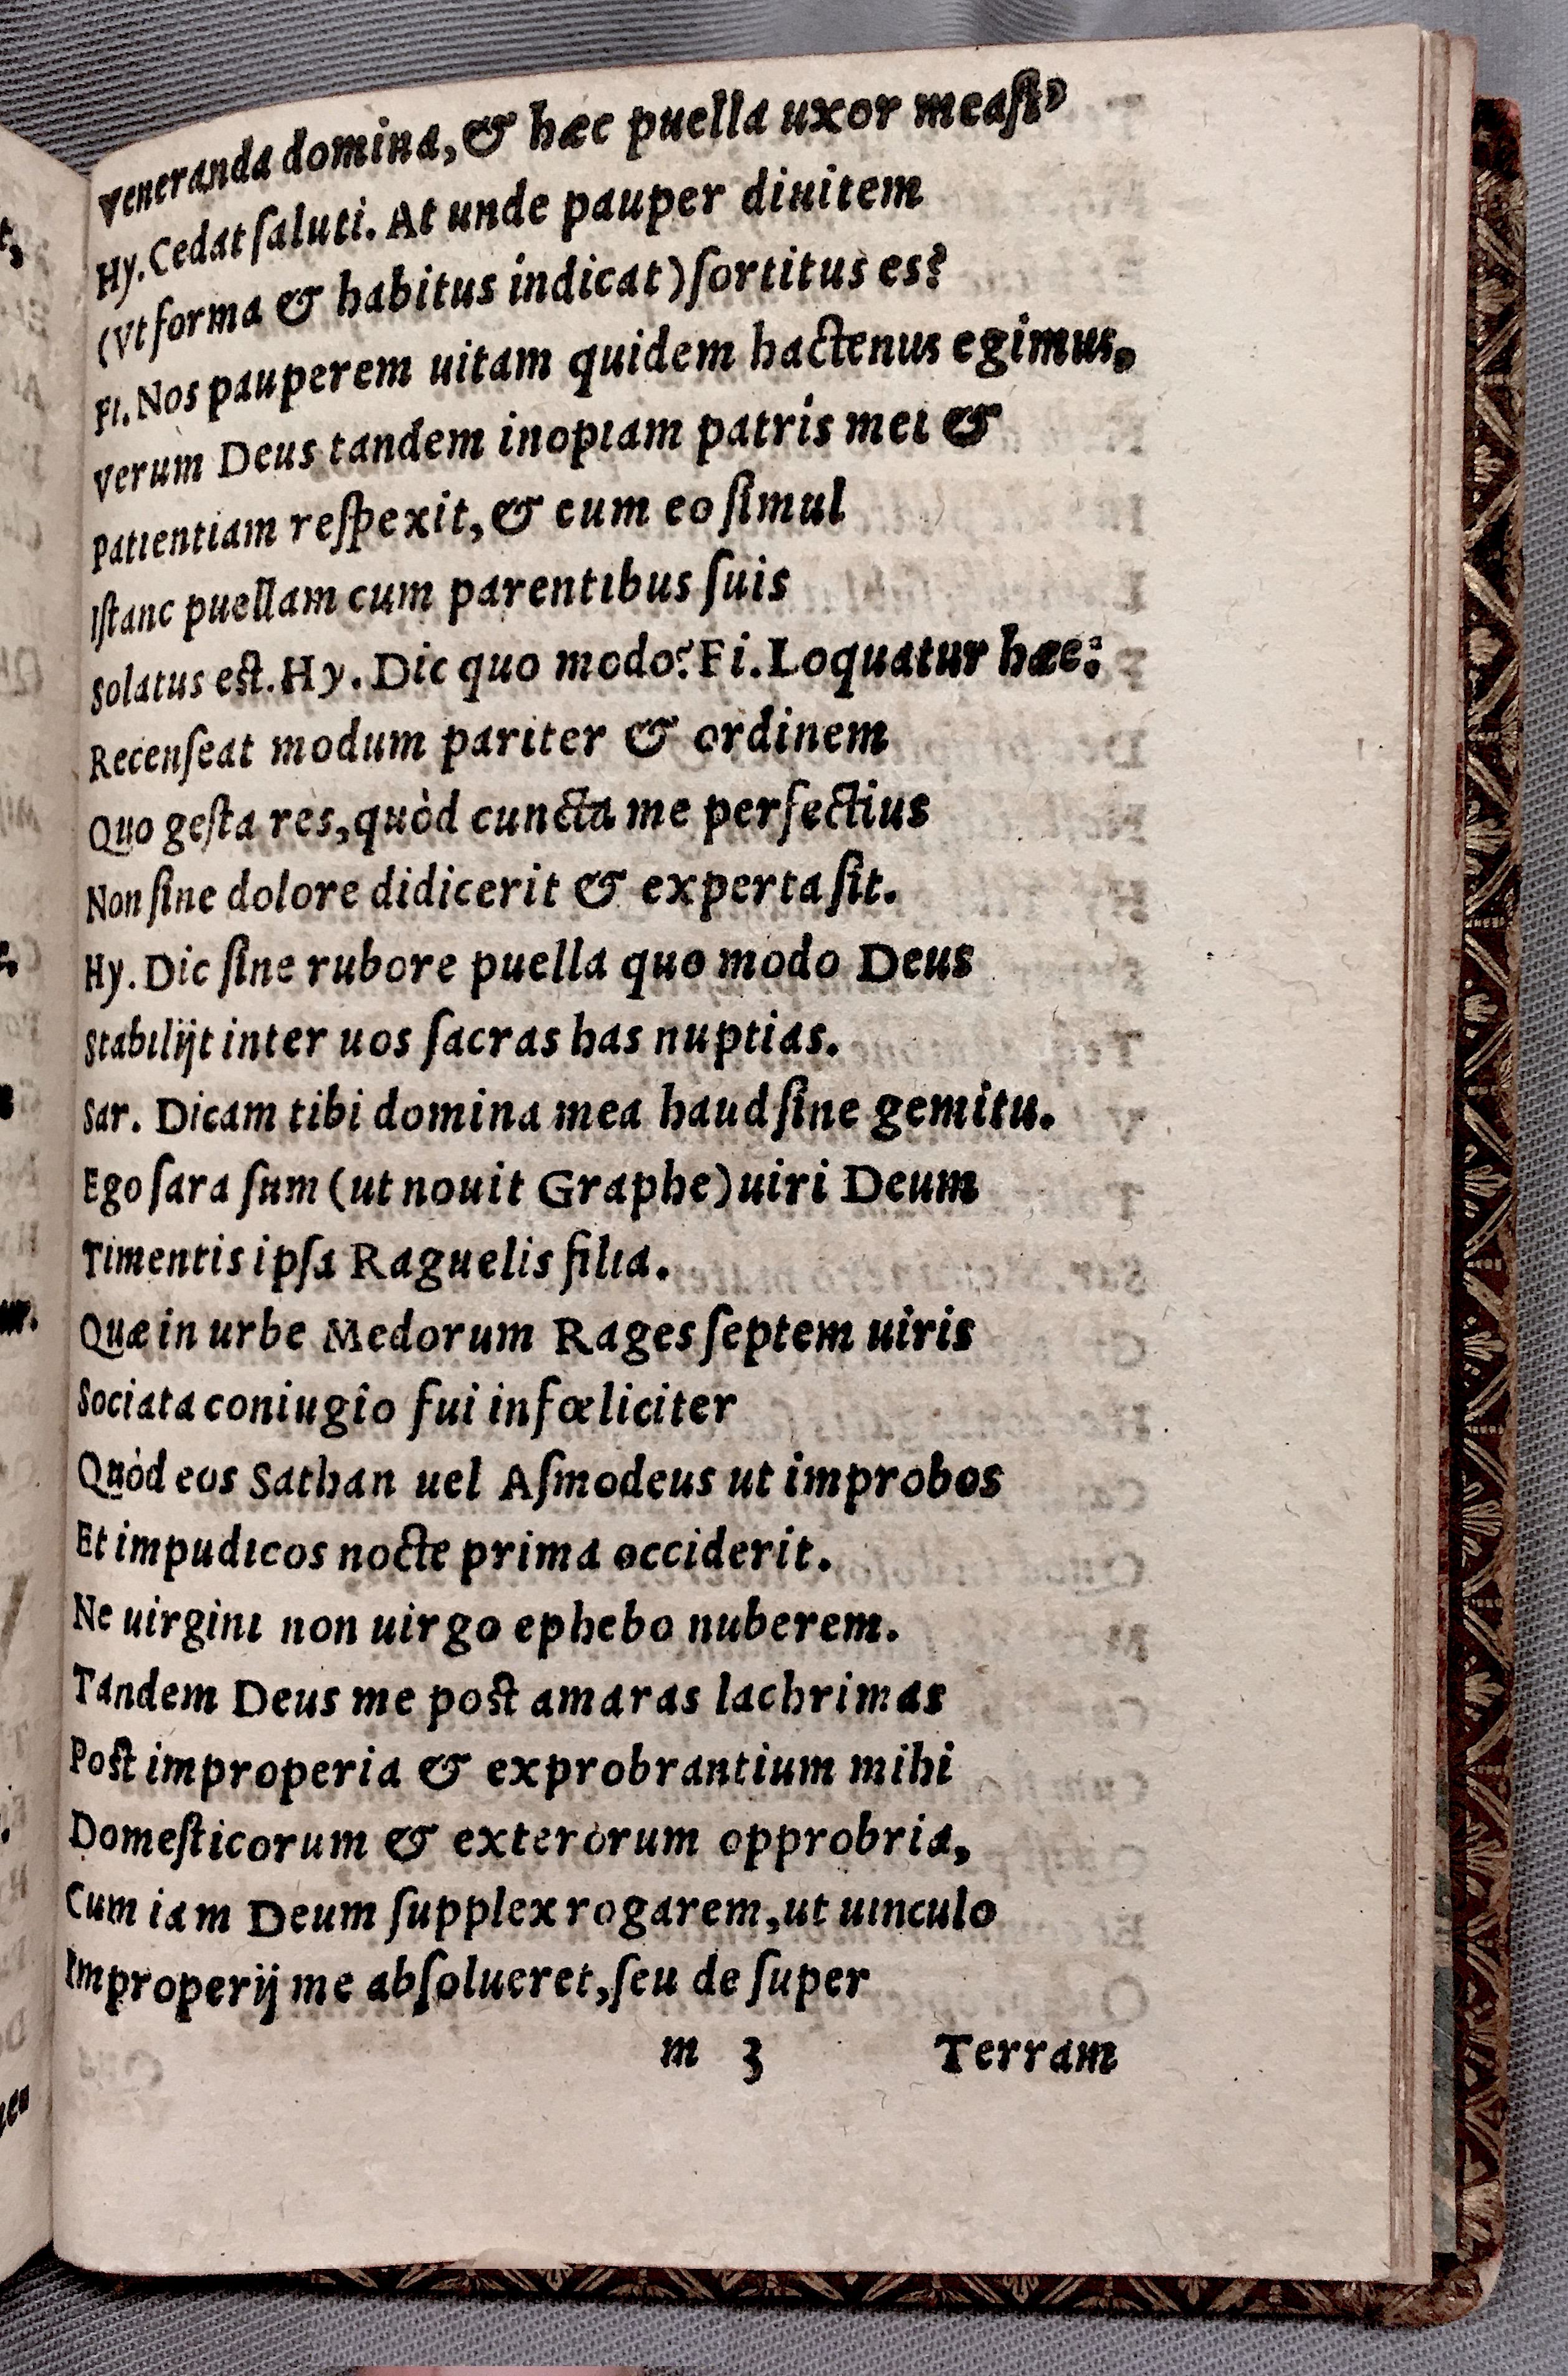 Veneranda domina, & hæc puella uxor meaſt?
Hy. Cedat ſaluti. At unde pauper diuitem
(Vt forma & habitus indicat) ſortitus es?
Fi. Nos pauperem uitam quidem hactenus egimus,
Verum Deus tandem inopiam patris mei &
Patientiam reſpexit, & cum eo ſimul
Iſtanc puellam cum parentibus ſuis
Solatus est. Hy. Dic quo modo? Fi. Loquatur hæc:
Recenſeat modum pariter & ordinem
Quo geſta res, quòd cuncta me perfectius
Non ſine dolore didicerit & experta ſit.
Hy. Dic ſine rubore puella quo modo Deus
Stabilijt inter uos ſacras has nuptias.
Sar. Dicam tibi domina mea haud ſine gemitu.
Ego ſara ſum (ut nouit Graphe) uiri Deum
Timentis ipſa Raguelis filia.
Quæ in urbe Medorum Rages ſeptem uiris
Sociata coniugio fui infœliciter
Quòd eos Sathan uel Aſmodeus ut improbos
Et impudicos nocte prima occiderit.
Ne uirgini non uirgo ephebo nuberem.
Tandem Deus me post amaras lachrimas
Post improperia & exprobrantium mihi
Domeſticorum & exterorum opprobria,
Cum iam Deum ſupplex rogarem, ut uinculo
Improperij me abſolueret, ſeu de ſuper
m 3 Terram